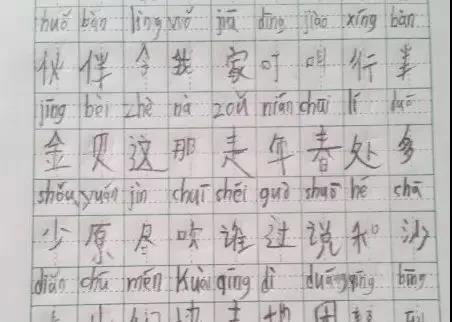 huǒ bàn lìng wǒ jiā dīng jiào xíng bàn
伙 伴 令 我 家 叮 叫 行 丰
jīng bèi zhè nà zǒu nián chūi lí duō
金 贝 这 那 走 年 春 处 多
shǒu yuán jìn chuī shéi guò shuō hé chā
少 原 尽 吹 谁 过 说 和 沙
diǎn chū mén kuài qīng dì